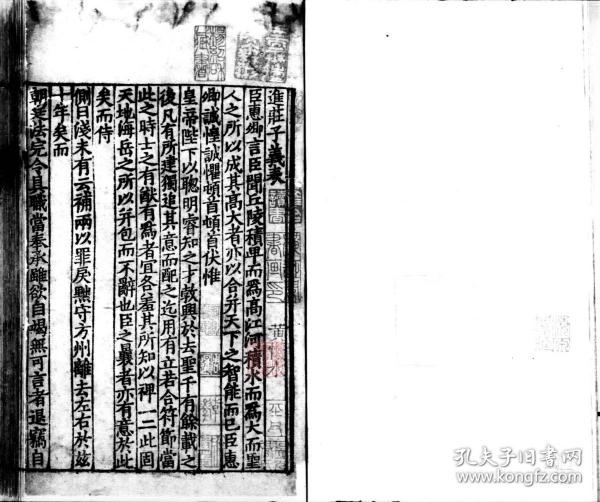 進莊子義表
臣惠卿言臣聞丘陵積卑而爲髙江河積水而爲大而聖
人之所以成其髙大者亦以合并天下之智能而已臣惠
卿誠惶誠懼頓首頓首伏惟
皇帝陛下以聰明睿知之才敦興於去聖千有餘載之
後凡有所建獨追其意而配之迄用有立若合符節當
此之時士之有猷有爲者宜各羞其所知以裨一二此固
天地海岳之所以并包而不辭也臣之曩者亦有意於此
矣而侍
側日淺未有云補兩以罪戾黜守方州離去左右於兹
十年矣而
朝廷法完令具職當奉承雖欲自竭無可言者退竊自
孔夫子旧书网
www.kongfz.com